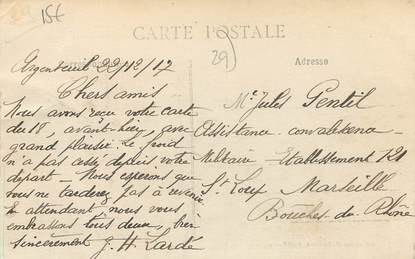 15€
CARTE POSTALE
29)
Adresse
Argenteuil 22/12/17
Chers amis
Nous avons reçu votre carte
du 18, avant-hier, avec
grand plaisir. Le froid
n'a pas cessé depuis votre
départ - Nous espérons que
vous ne tarderez pas à revenir
En attendant, nous vous
embrassons tous deux, bien
sincèrement J. H. Lardé
Mr Jules Gentil
Assistance convalescence
Militaire Etablissement 121
St Loup Marseille
Bouches-du-Rhône